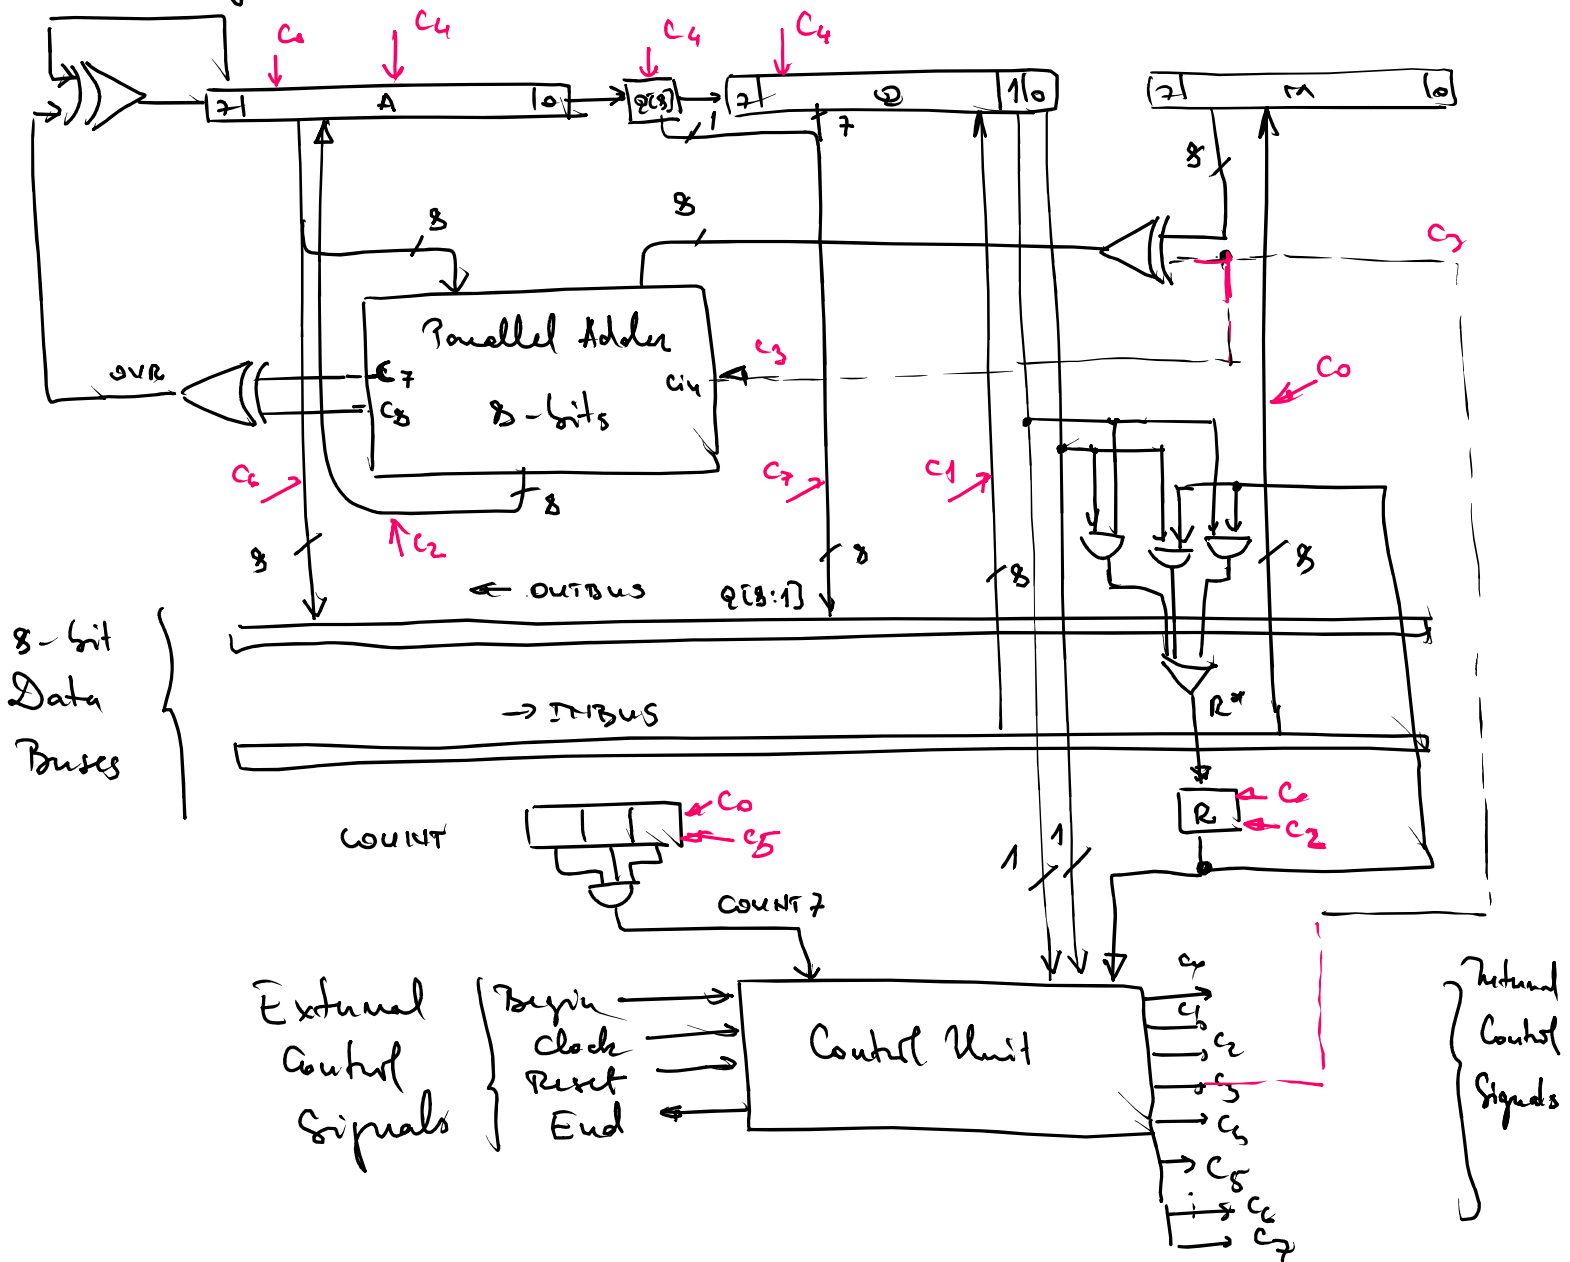 C0 C4 C4 C4
7 A 0 Q[8] 7 Q 1 0 7 M 0
1 7
8
8 8
C3
Parallel Adder
8-bits
C7
C8
Cin
C3
OVR
C0
C6 C7 C1
8
C2
8 8 8 8
← OUTBUS Q[8:1]
8-bit
Data
Buses
→ INBUS
R*
R
C0
C2
COUNT
C0
C5
1 1
COUNT7
External
Control
Signals
Begin
Clock
Reset
End
Control Unit
C1
C2
C3
C5
C6
C7
Internal
Control
Signals